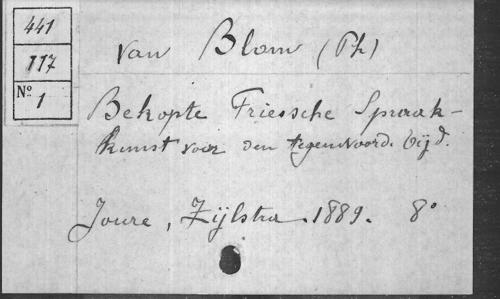 441
117
Nº 1
van Blom (Ph)
Bekopte Friessche Spraak-
kunst voor den tegenwoord. tijd.
Joure, Zijlstra. 1889. 8°